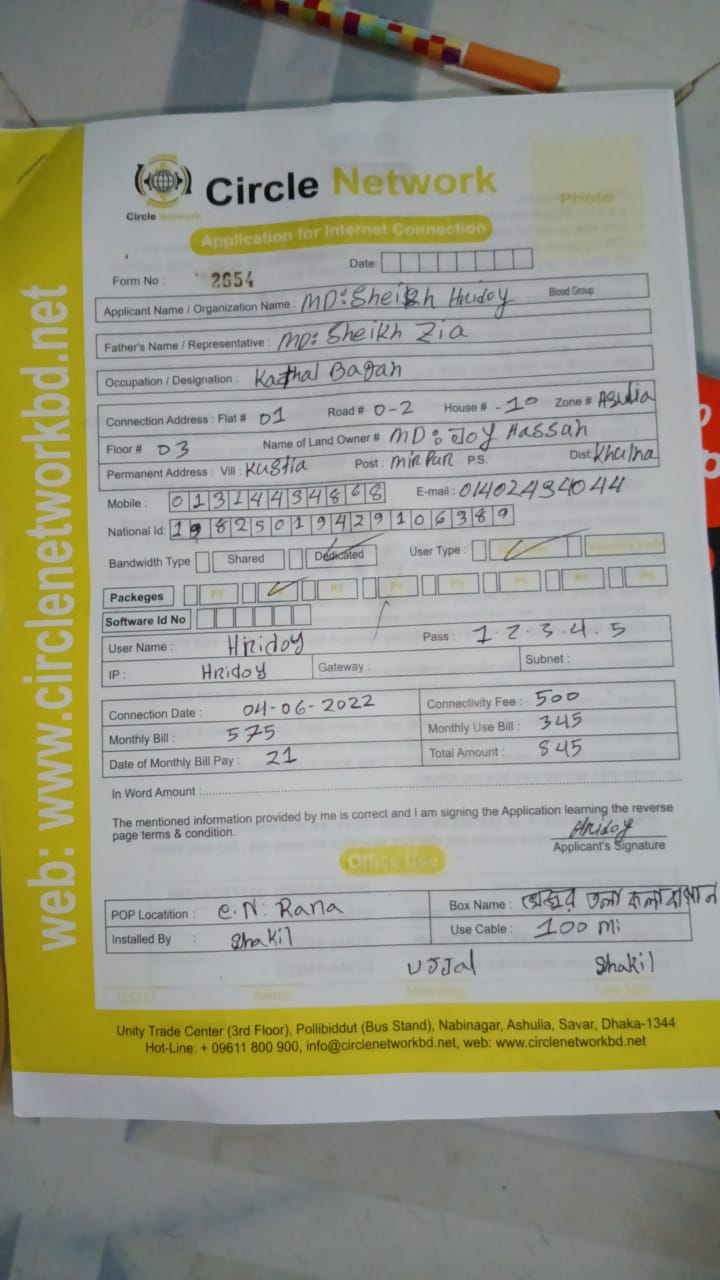 Circle Network
Circle Network
Photo
Application for Internet Connection
Date:
Form No : 2654
Applicant Name / Organization Name : MD: Sheikh Hridoy Blood Group :
Father's Name / Representative : MD: Sheikh Zia
Occupation / Designation : Kathal Bagan
Connection Address : Flat # 01 Road # 0-2 House # -10 Zone # Asulia
Floor # 03 Name of Land Owner # MD: Joy Hassan
Permanent Address : Vill : Kustia Post : Mirpur P.S. Dist: Khulna
Mobile : 01314434868 E-mail : 01402434044
National Id: 19825019429106389
Bandwidth Type Shared Dedicated User Type :
Packeges P1 P3 P4 P5 P6 P7 P8
Software Id No
User Name : Hridoy Pass : 1.2.3.4.5
IP : Hridoy Gateway : Subnet :
Connection Date : 04-06-2022 Connectivity Fee : 500
Monthly Bill : 575 Monthly Use Bill : 345
Date of Monthly Bill Pay : 21 Total Amount : 845
In Word Amount :
The mentioned information provided by me is correct and I am signing the Application learning the reverse
page terms & condition.
Hridoy
Applicant's Signature
Office Use
POP Locatition : C.N: Rana Box Name : তলা কলাবাগান
Installed By : Shakil Use Cable : 100 Mi
Ujjal Shakil
C.O.O Admin Marketing Line Man
Unity Trade Center (3rd Floor), Pollibiddut (Bus Stand), Nabinagar, Ashulia, Savar, Dhaka-1344
Hot-Line: + 09611 800 900, info@circlenetworkbd.net, web: www.circlenetworkbd.net
web: www.circlenetworkbd.net